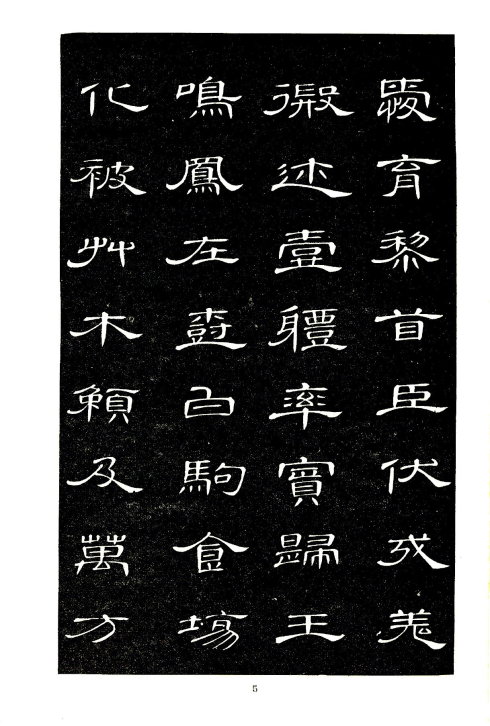 愛育黎首臣伏戎羌
遐迩壹軆率賓歸王
鳴鳳在樹白駒食塲
化被艸木賴及萬方
5